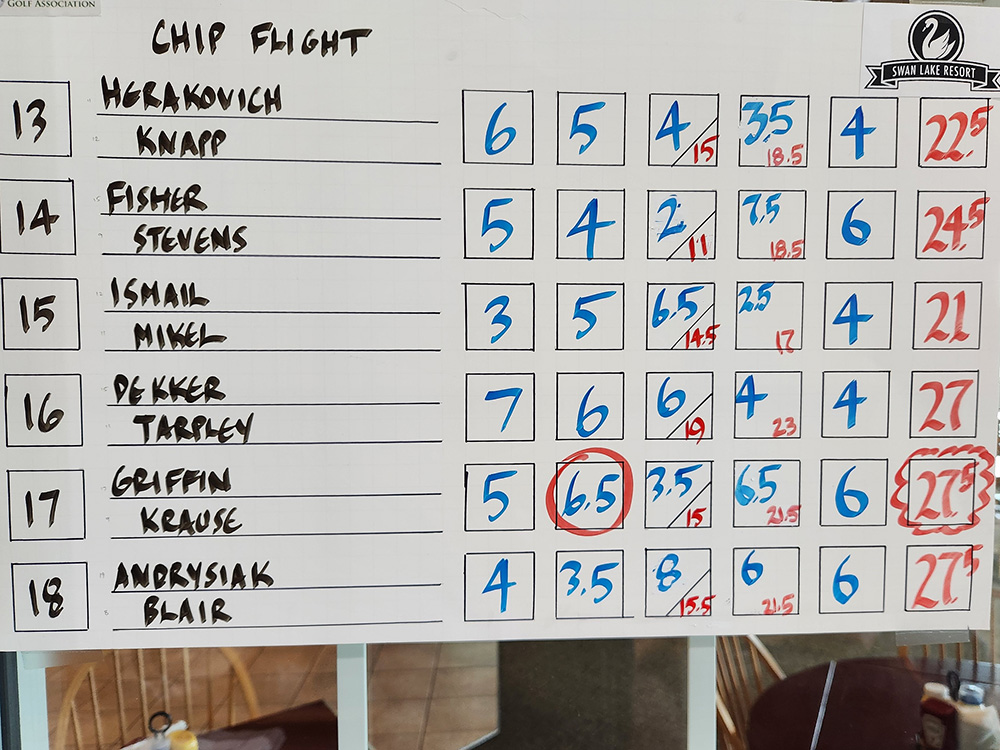 GOLF ASSOCIATION
CHIP FLIGHT
SWAN LAKE RESORT
13 HERAKOVICH
KNAPP
6 5 4 15 3.5 18.5 4 22.5
14 FISHER
STEVENS
5 4 2 11 7.5 18.5 6 24.5
15 ISMAIL
MIKEL
3 5 6.5 14.5 2.5 17 4 21
16 DEKKER
TARPLEY
7 6 6 19 4 23 4 27
17 GRIFFIN
KRAUSE
5 6.5 3.5 15 6.5 21.5 6 27.5
18 ANDRYSIAK
BLAIR
4 3.5 8 15.5 6 21.5 6 27.5